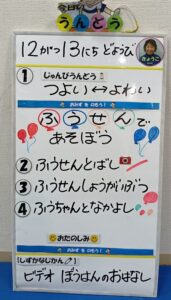 今日の
うんどう
きょうこ
12がつ13にち どようび
① じゅんびうんどう
つよい↔よわい
おみずをのもう!
ふうせんで
あそぼう
② ふうせんとばし
③ ふうせんしょうがいぶつ
④ ふうちゃんとなかよし
おたのしみ
おみずをのもう!
(しずかなじかん)
ビデオ ぼうはんのおはなし